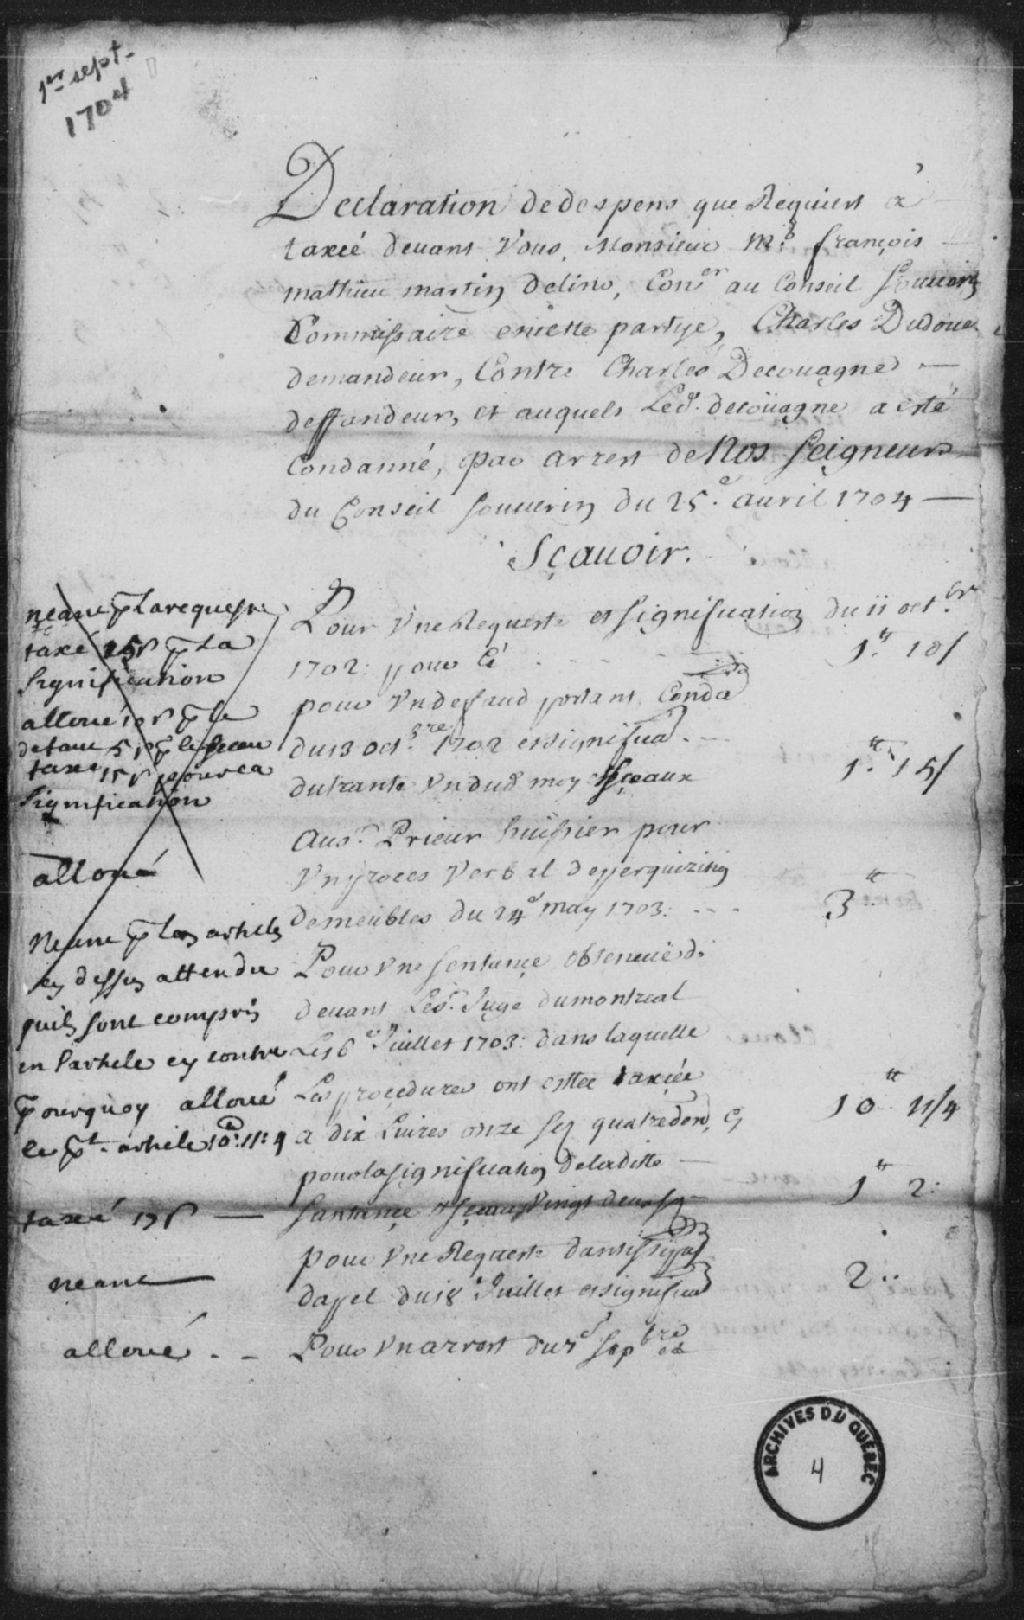 1er sept.
1704
Declaration de despens que Requiert à
taxée devant Vous, Monsieur Mr. françois
mathieu martin Delino, Conser au Conseil Souverin
Commissaire en cette partye, Charles
demandeur, Contre Charles Decouagne
deffandeur, et auquels Led. decoüagne a esté
Condanné, par arrest de Nos Seigneurs
du Conseil souverin du 25e. avril 1704
Sçavoir.
neant pr la requeste
taxé 15s pr La
signification
alloué 10s pr le
defaut 5s pr le sceau
taxé 15s pour la
signification
Pour Vne Requeste et signification du 11 octbr
1702: pour Cé 1# 10s
pour Vn deffaud portant
du 13 octbre 1702 et significa
1# 15s
alloué
Aus. Prieur huissier pour
Vn proces Verbal de perquizition
de meubles du 24e may 1703: 3#
Neant pr les articles
cy dessus attendu
quils sont compris
en Larticle cy contre
pourquoy alloué
le pt. article 10# 11s 4
Pour Vne sentance obtenüe
devant Led. Juge du montreal
Le 16e Juillet 1703: dans laquelle
Les procedures ont esttée taxées
a dix Livres onze quatre 10# 11/4
taxé 17s
pour la signification de laditte
santançe et sçeau Vingt deux 1# 2:
neant
pour Vne Requeste
dapel du 18e Juillet et significa 2#
alloué
Pour Vn arrest du 7e sepbre
ARCHIVES DU QUÉBEC
4